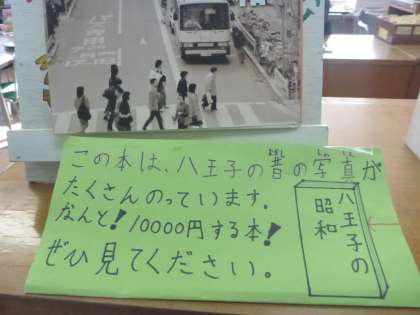 この本は、八王子の昔の写真が
たくさんのっています。
なんと!10000円する本!
ぜひ見てください。
八王子の
昭和